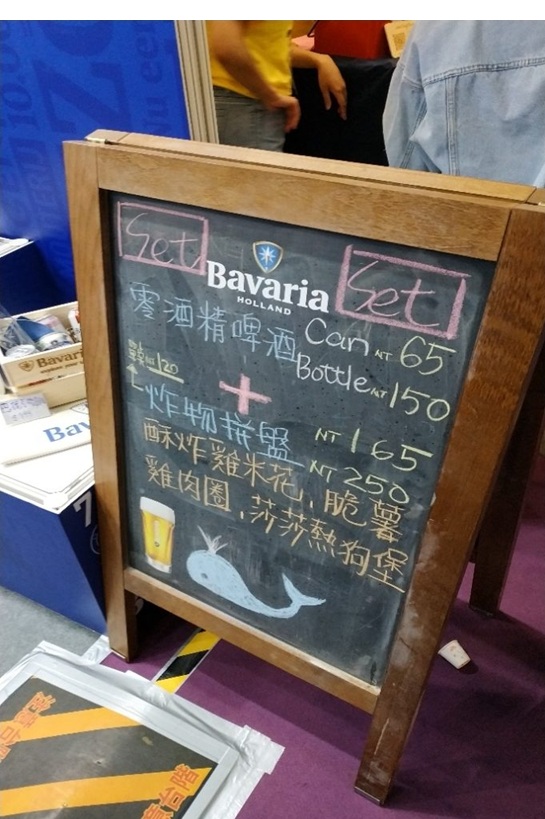 Set
Bavaria
HOLLAND
Set
零酒精啤酒 Can NT 65
Bottle NT 150
120
+
炸物拼盤 NT 165
NT 250
酥炸雞米花, 脆薯
雞肉圈, 莎莎熱狗堡
Bavaria
Bav